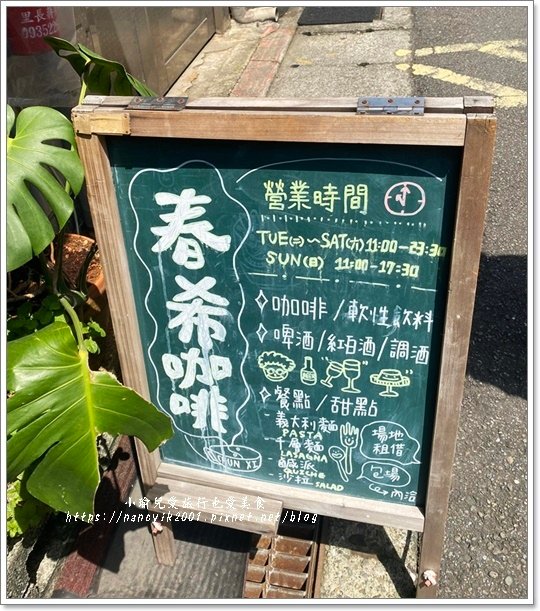 里長
09352
春希咖啡
CHUN XI
營業時間
TUE(二)~SAT(六) 11:00-23:30
SUN(日) 11:00-17:30
咖啡/軟性飲料
啤酒/紅白酒/調酒
餐點/甜點
義大利麵
PASTA
千層麵
LASAGNA
鹹派
QUICHE
沙拉 SALAD
場地
租借
包場
內洽
小瑜兒愛旅行也愛美食
https://nancyik2001.pixnet.net/blog